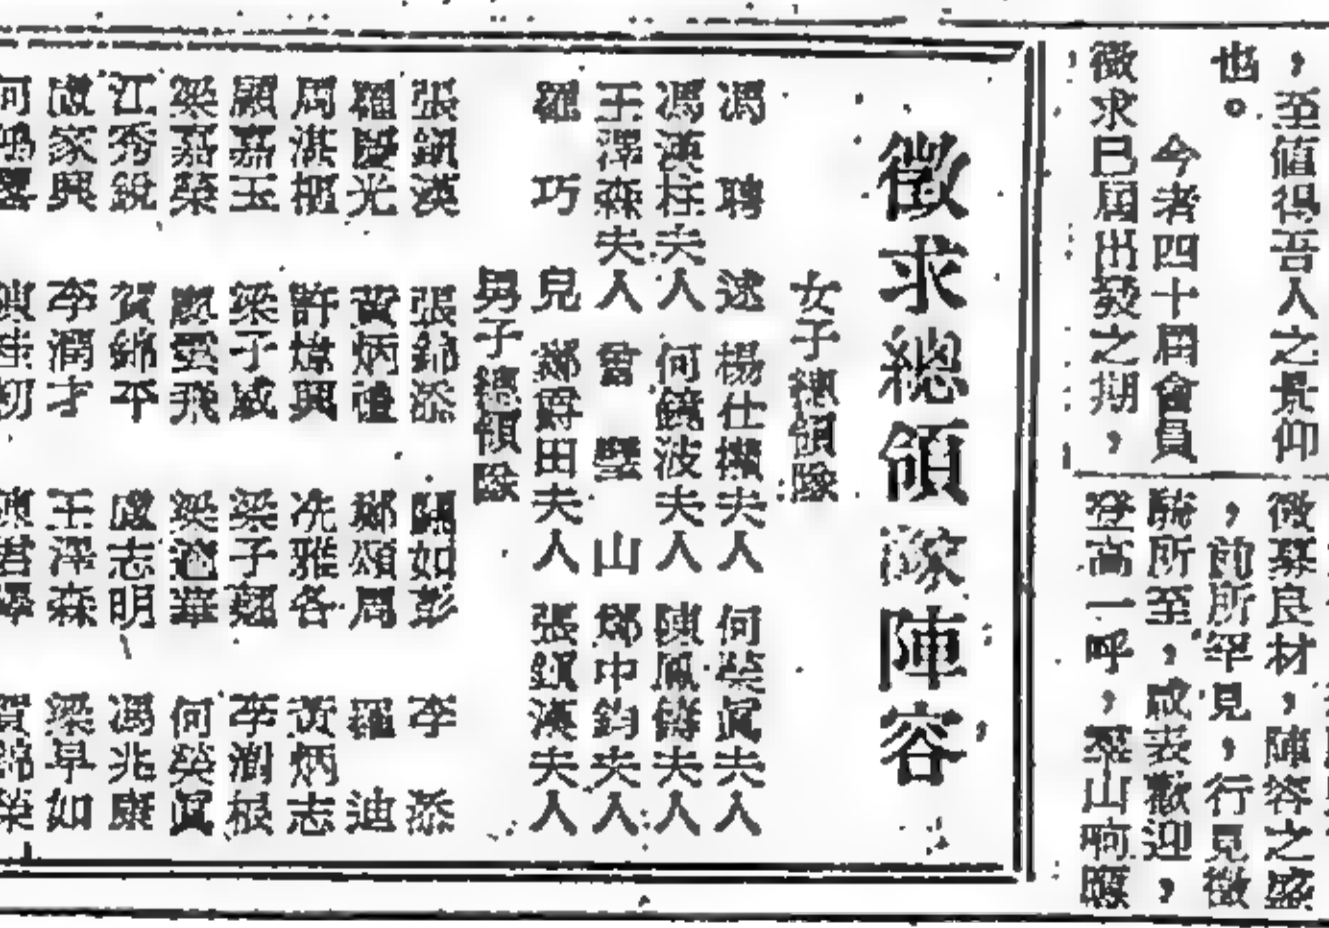 ，至值得吾人之景仰
也。
今者四十屆會員
徵求已屆出發之期，
徵募良材，陣容之盛
，前所罕見，行見徵
騎所至，咸表歡迎，
登高一呼，羣山响應
徵求總領隊陣容
女子總領隊
馮聘逑 楊仕 夫人 何榮真夫人
馮漢柱夫人 何鏡波夫人 陳鳳 夫人
王澤森夫人 曾璧山 鄧中鈞夫人
羅巧兒 鄭爵田夫人 張鎮漢夫人
男子總領隊
張鎮漢 張錦添 關如彭 李添
羅 光 黃炳禮 鄭頌周 羅迪
周湛樞 許燎興 冼雅各 黃炳志
顯嘉玉 梁子威 梁子 李潤根
梁嘉榮 雲飛 梁 華 何榮真
江秀銳 賀錦平 盛志明 馮兆康
盛家興 李潤才 王澤森 梁早如